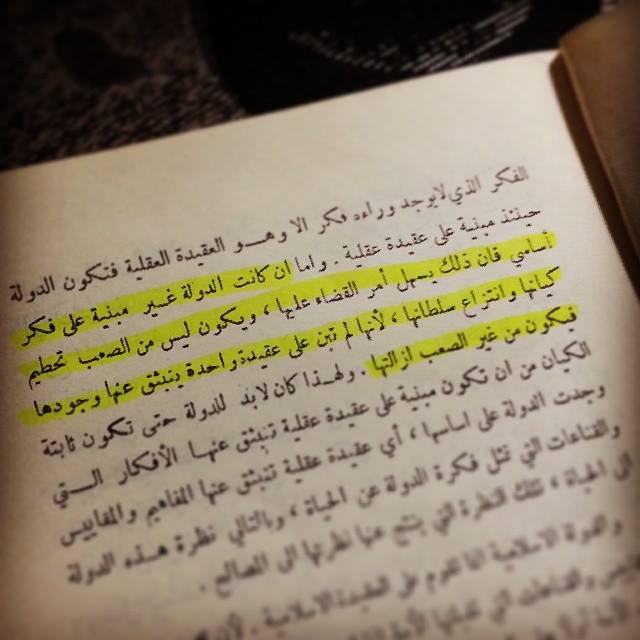 الفكر الذي لايوجد وراءه فكر الا وهو العقيدة العقلية فتكون الدولة
حينئذ مبنية على عقيدة عقلية . واما ان كانت الدولة غير مبنية على فكر
اساسي فان ذلك يسهل أمر القضاء عليها ، ويكون ليس من الصعب تحطيم
كيانها وانتزاع سلطانها ، لأنها لم تبن على عقيدة واحدة ينبثق عنها وجودها
فيكون من غير الصعب ازالتها . ولهذا كان لابد للدولة حتى تكون ثابتة
الكيان من ان تكون مبنية على عقيدة عقلية تنبثق عنها الأفكار التي
وجدت الدولة على اساسها ، أي عقيدة عقلية تنبثق عنها المفاهيم والمقاييس
والقناعات التي تمثل فكرة الدولة عن الحياة ، وبالتالي نظرة هذه الدولة
الى الحياة ، تلك النظرة التي ينتج عنها نظرتها الى المصالح .
والدولة الاسلامية انما تقوم على العقيدة الاسلامية . لأن